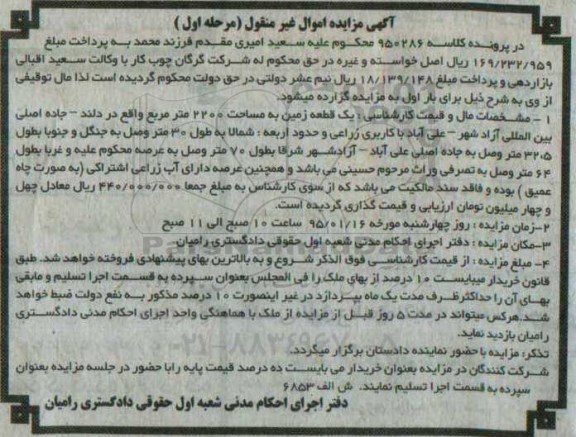 آگهی مزایده اموال غیر منقول (مرحله اول )
در پرونده کلاسه ۹۵۰۲۸۶ محکوم علیه سعید امیری مقدم فرزند محمد به پرداخت مبلغ
۱۶۹/۲۳۲/۹۵۹ ریال اصل خواسته و غیره در حق محکوم له شرکت گرگان چوب کار با وکالت سعید اقبالی
بازاردهی و پرداخت مبلغ ۱۸/۱۳۹/۱۴۸ ریال نیم عشر دولتی در حق دولت محکوم گردیده است لذا مال توقیفی
از وی به شرح ذیل برای بار اول به مزایده گزارده میشود.
۱ - مشخصات مال و قیمت کارشناسی : یک قطعه زمین به مساحت ۲۲۰۰ متر مربع واقع در دلند – جاده اصلی
بین المللی آزاد شهر – علی آباد با کاربری زراعی و حدود اربعه : شمالا به طول ۳۰ متر وصل به جنگل و جنوبا بطول
۳۲،۵ متر وصل به جاده اصلی علی آباد – آزادشهر شرقا بطول ۷۰ متر وصل به عرصه محکوم علیه و غربا بطول
۶۴ متر وصل به تصرفی وراث مرحوم حسینی می باشد و همچنین عرصه دارای آب زراعی اشتراکی (به صورت چاه
عمیق ) بوده و فاقد سند مالکیت می باشد که از سوی کارشناس به مبلغ جمعا ۴۴۰/۰۰۰/۰۰۰ ریال معادل چهل
و چهار میلیون تومان ارزیابی و قیمت گذاری گردیده است.
۲-زمان مزایده : روز چهارشنبه مورخه ۹۵/۰۱/۱۶ ساعت ۱۰ صبح الی ۱۱ صبح
۳-مکان مزایده : دفتر اجرای احکام مدنی شعبه اول حقوقی دادگستری رامیان
۴- مبلغ مزایده : از قیمت کارشناسی فوق الذکر شروع و به بالاترین بهای پیشنهادی فروخته خواهد شد. طبق
قانون خریدار میبایست ۱۰ درصد از بهای ملک را فی المجلس بعنوان سپرده به قسمت اجرا تسلیم و مابقی
بهای آن را حداکثر ظرف مدت یک ماه بپردازد در غیر اینصورت ۱۰ درصد مذکور به نفع دولت ضبط خواهد
شد. هرکس میتواند در مدت ۵ روز قبل از مزایده از ملک با هماهنگی واحد اجرای احکام مدنی دادگستری
رامیان بازدید نماید.
تذکر: مزایده با حضور نماینده دادستان برگزار میگردد.
شرکت کنندگان در مزایده بعنوان خریدار می بایست ده درصد قیمت پایه را با حضور در جلسه مزایده بعنوان
سپرده به قسمت اجرا تسلیم نمایند. ش الف ۶۸۵۳
دفتر اجرای احکام مدنی شعبه اول حقوقی دادگستری رامیان